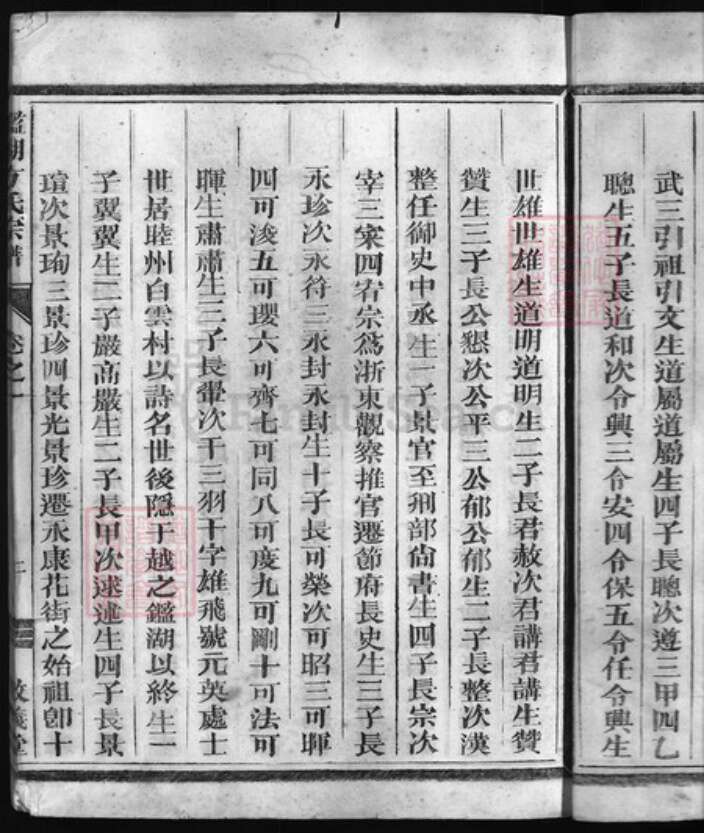 武三引祖引文生道屬道屬生四子長聰次遵三甲四乙
聰生五子長道和次令興三令安四令保五令任令興生
世雄世雄生道明道明生二子長君赦次君講君講生贊
贊生三子長公懇次公平三公郁公郁生二子長整次漢
整任御史中丞生一子景官至刑部尙書生四子長宗次
宰三寀四宕宗爲浙東觀察推官遷節府長史生三子長
永珍次永符三永封永封生十子長可榮次可昭三可暉
四可浚五可瓔六可齊七可同八可度九可剛十可法可
暉生肅肅生三子長翬次干三羽干字雄飛號元英處士
世居睦州白雲村以詩名世後隱于越之鑑湖以終生一
子翼翼生二子嚴高嚴生二子長甲次述述生四子長景
瑄次景珣三景珍四景光景珍遷永康花街之始祖卽十
鑑湖方氏宗譜
卷之一
敦義堂